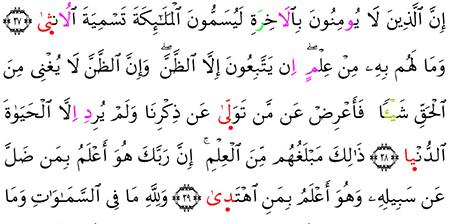 إِنَّ ٱلَّذِينَ لَا يُومِنُونَ بِٱلَاخِرَةِ لَيُسَمُّونَ ٱلْمَلَٰٓئِكَةَ تَسْمِيَةَ ٱلُانث۪يٰ ٢٧
وَمَا لَهُم بِهِۦ مِنْ عِلْمٍ اِن يَتَّبِعُونَ إِلَّا ٱلظَّنَّ وَإِنَّ ٱلظَّنَّ لَا يُغْنِى مِنَ
ٱلْحَقِّ شَيْـٔاً فَأَعْرِضْ عَن مَّن تَوَلّ۪يٰ عَن ذِكْرِنَا وَلَمْ يُرِدِ اِلَّا ٱلْحَيَوٰةَ
ٱلدُّنْي۪ا ٢٨ ذَٰلِكَ مَبْلَغُهُم مِّنَ ٱلْعِلْمِ إِنَّ رَبَّكَ هُوَ أَعْلَمُ بِمَن ضَلَّ
عَن سَبِيلِهِۦ وَهُوَ أَعْلَمُ بِمَنِ ٱهْتَد۪يٰ ٢٩ وَلِلهِ مَا فِى ٱلسَّمَٰوَٰتِ وَمَا